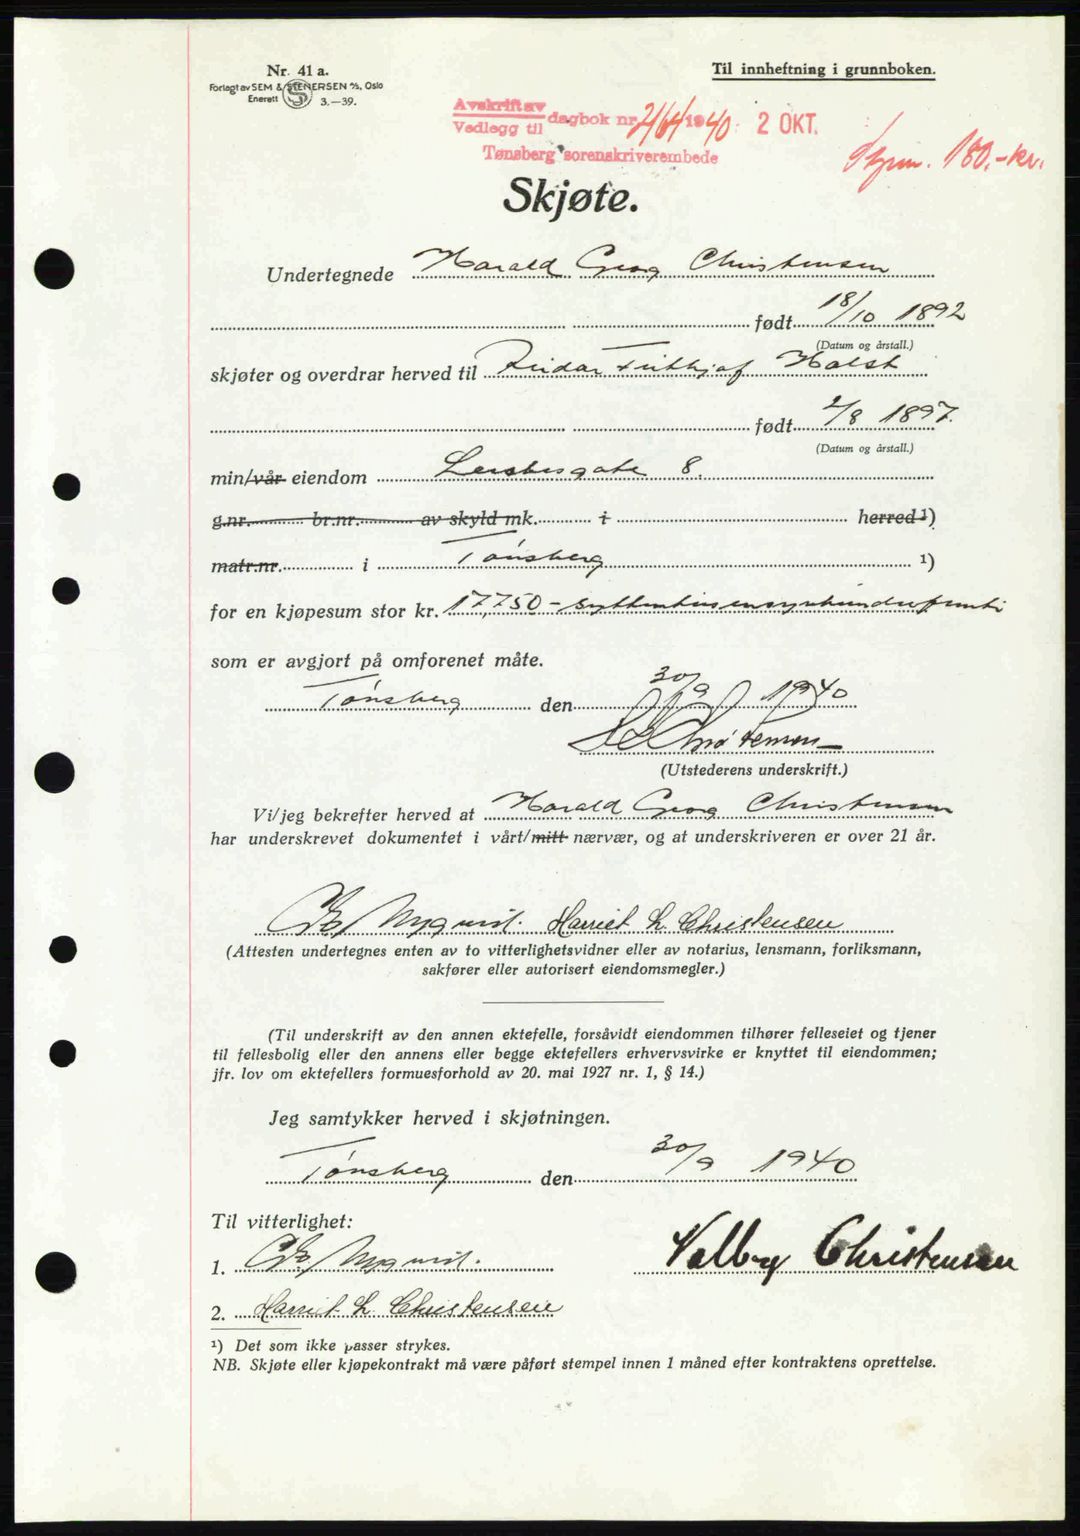 Nr. 41 a.
Forlagt av SEM & STENERSEN A/S, Oslo
Enerett 3.—39.
Til innheftning i grunnboken.
Avskrift av
Vedlegg til dagbok nr. 2164 1940 2 OKT.
Tønsberg sorenskriverembede
180.- kr.
Skjøte.
Undertegnede Harald Georg Christensen
født 18/10 1892
(Datum og årstall.)
skjøter og overdrar herved til Reidar Frithjof Holst
født 2/8 1897.
(Datum og årstall.)
min/vår eiendom 8.
g.nr. br.nr. av skyld mk. i herred ¹)
matr.nr. i Tønsberg ¹)
for en kjøpesum stor kr. 17750 - syttentusensyvhundrefemti
som er avgjort på omforenet måte.
Tønsberg den 30/9 1940
(Utstederens underskrift.)
Vi/jeg bekrefter herved at Harald Georg Christensen
har underskrevet dokumentet i vårt/mitt nærvær, og at underskriveren er over 21 år.
Nyqvist. Harriet L. Christensen
(Attesten undertegnes enten av to vitterlighetsvidner eller av notarius, lensmann, forliksmann,
sakfører eller autorisert eiendomsmegler.)
(Til underskrift av den annen ektefelle, forsåvidt eiendommen tilhører felleseiet og tjener
til fellesbolig eller den annens eller begge ektefellers erhvervsvirke er knyttet til eiendommen;
jfr. lov om ektefellers formuesforhold av 20. mai 1927 nr. 1, § 14.)
Jeg samtykker herved i skjøtningen.
Tønsberg den 30/9 1940
Til vitterlighet:
Valborg Christensen
1. Nyqvist.
2. Harriet L. Christensen
¹) Det som ikke passer strykes.
NB. Skjøte eller kjøpekontrakt må være påført stempel innen 1 måned efter kontraktens oprettelse.